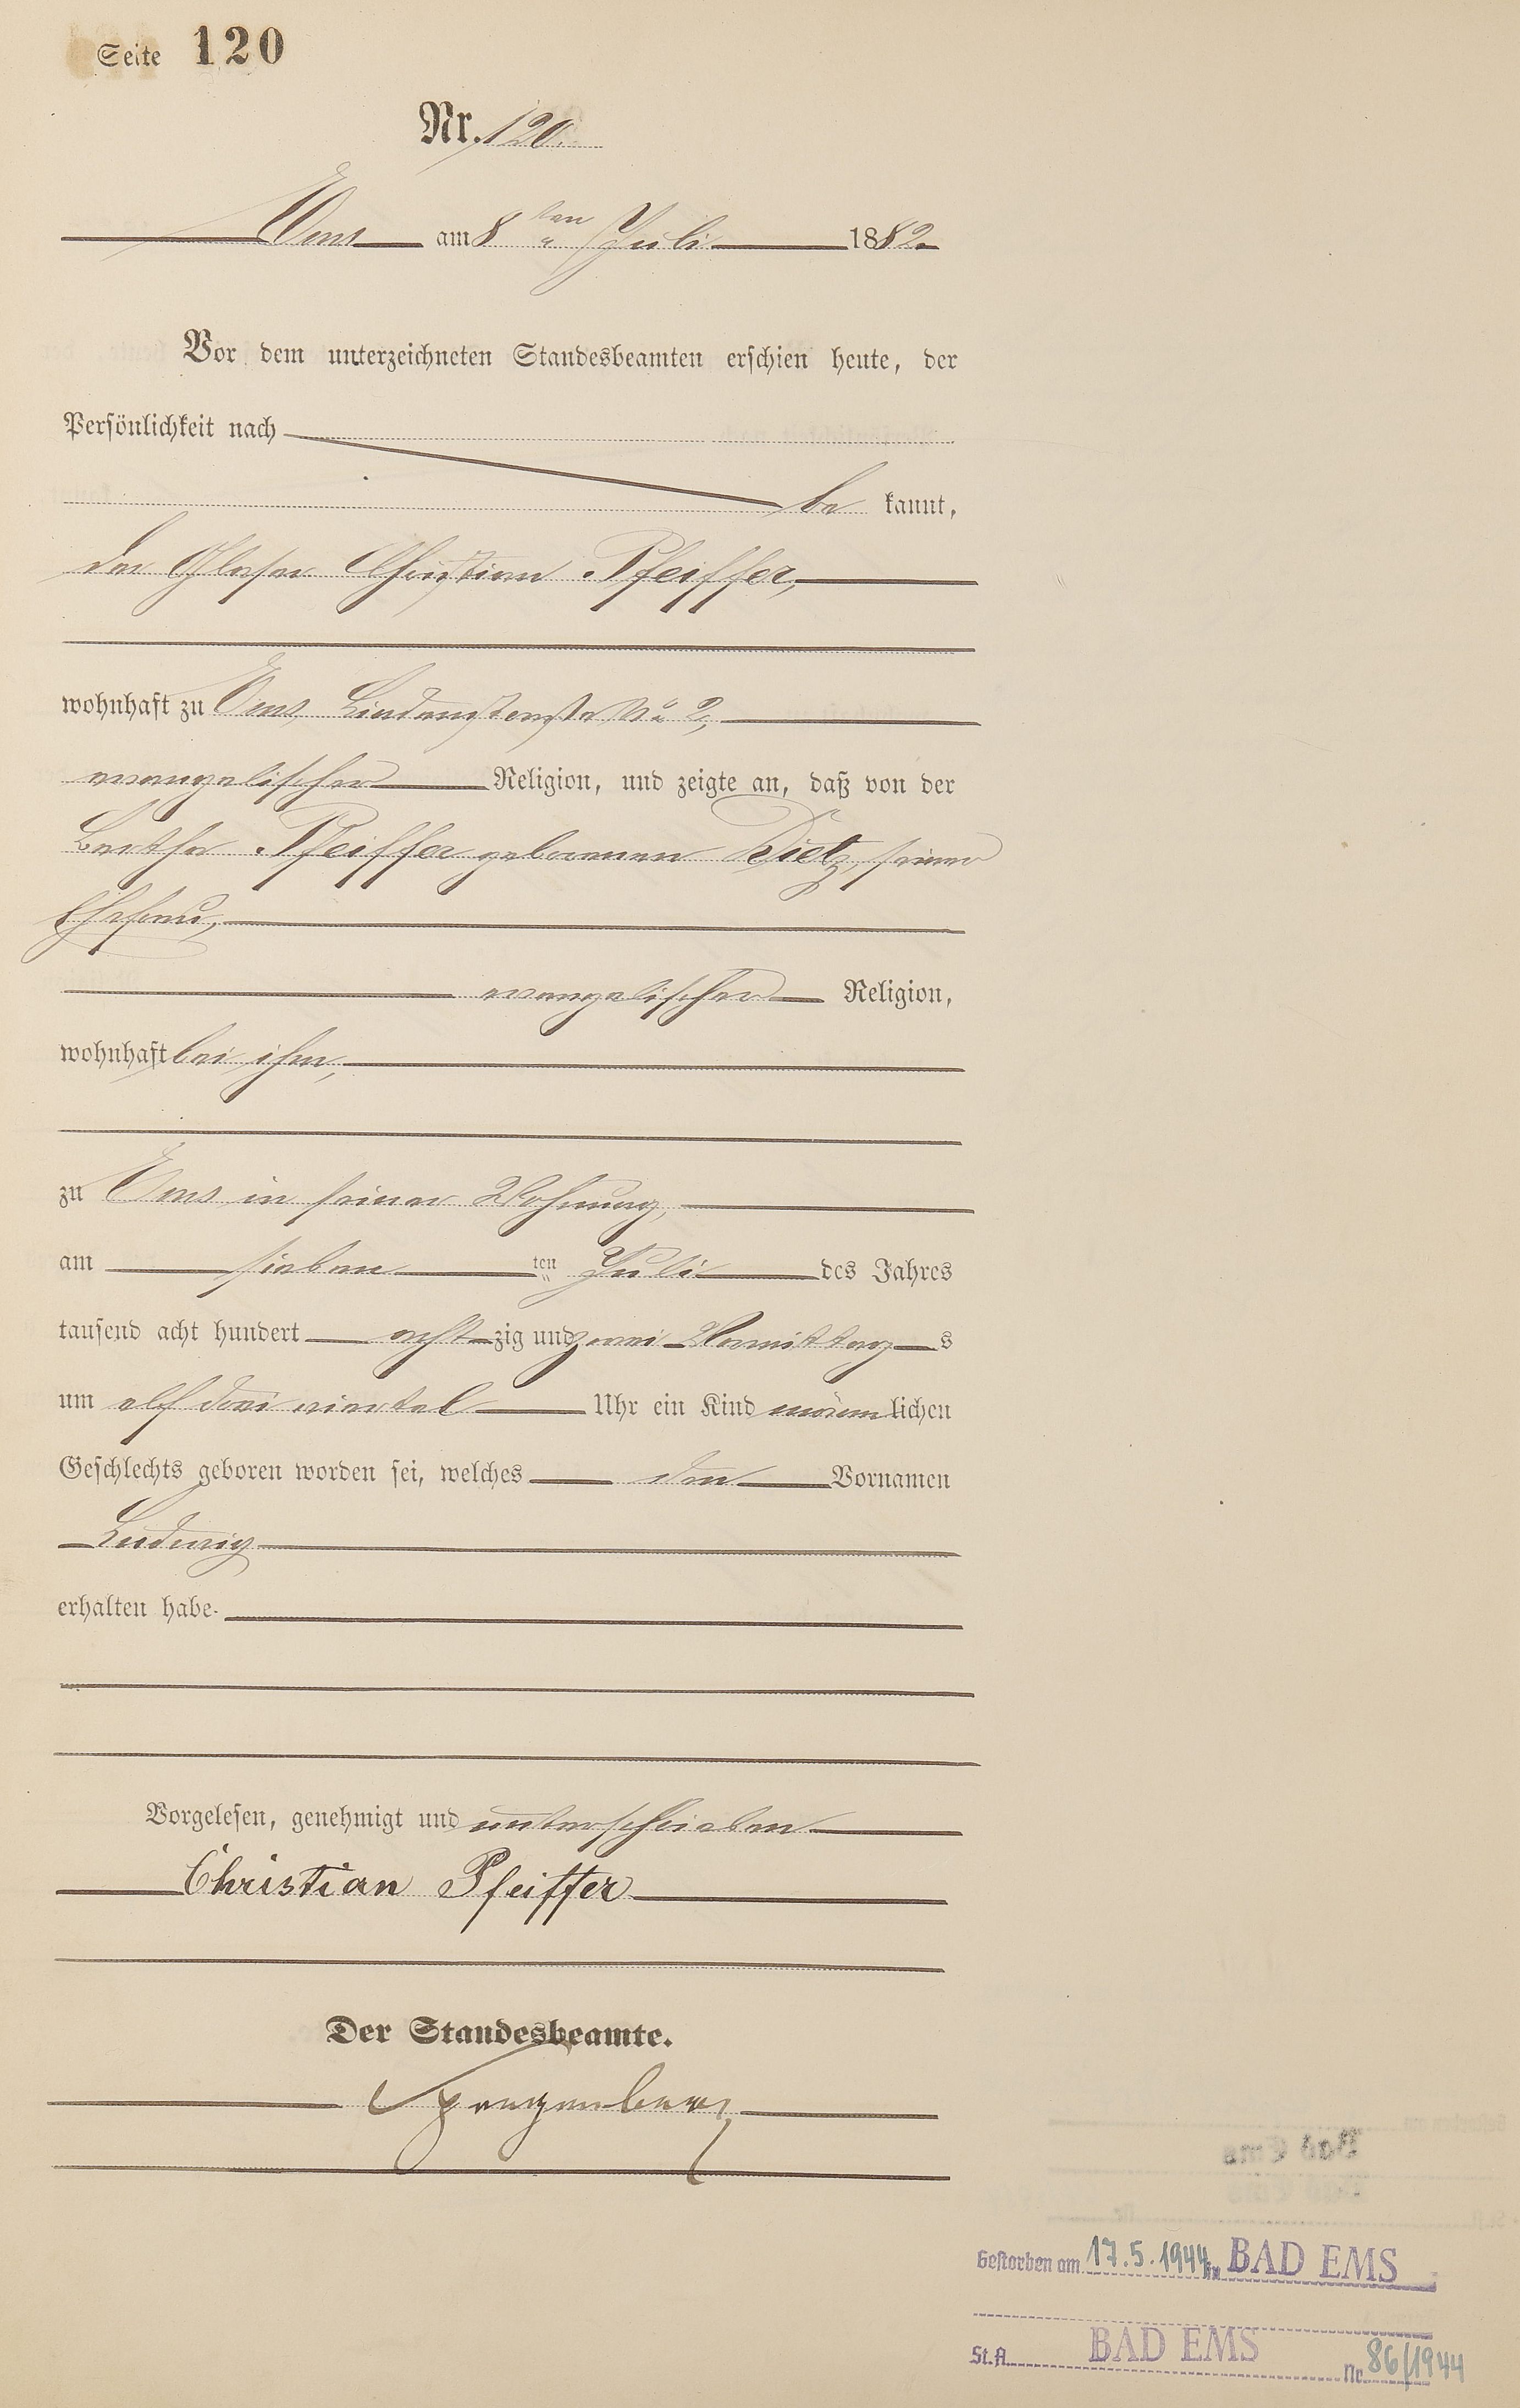 Seite 120
Nr. 120.
Ems am 8ten Juli 1882.
Vor dem unterzeichneten Standesbeamten erschien heute, der
Persönlichkeit nach
be kannt,
der Glaser Christian Pfeiffer,
wohnhaft zu Ems, Lindenstraße No 2,
evangelischer Religion, und zeigte an, daß von der
Bertha Pfeiffer geborenen Dietz, seiner
Ehefrau,
evangelischer Religion,
wohnhaft bei ihm,
zu Ems in seiner Wohnung,
am sieben ten Juli des Jahres
tausend acht hundert acht zig und zwei Vormittag s
um elf drei viertel Uhr ein Kind männ lichen
Geschlechts geboren worden sei, welches den Vornamen
Ludwig
erhalten habe.
Vorgelesen, genehmigt und unterschrieben
Christian Pfeiffer
Der Standesbeamte.
Spangenberg
Gestorben am 17.5.1944 in BAD EMS
St.A. BAD EMS Nr. 86/1944